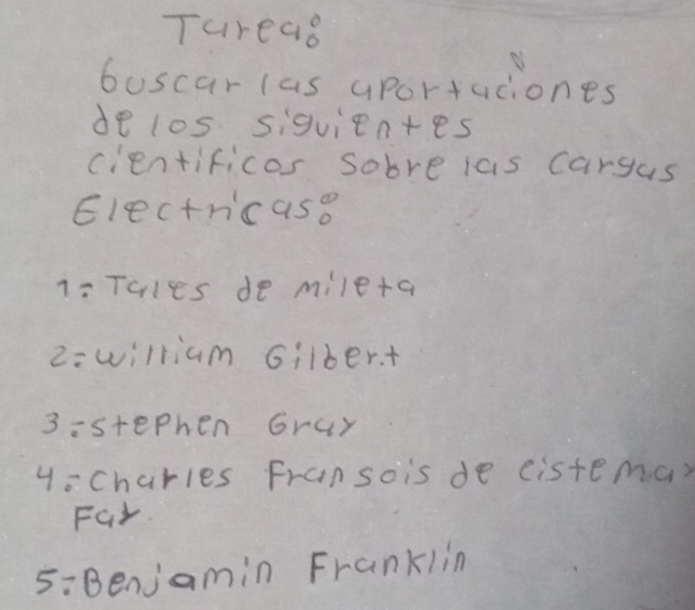 Tarea:
buscar las aportaciones
de los siguientes
cientificos sobre las cargas
Electricas:
1: Tales de mileta
2: William Gilbert
3: Stephen Gray
4: Charles Fransois de cistemay
Fay
5: Benjamin Franklin